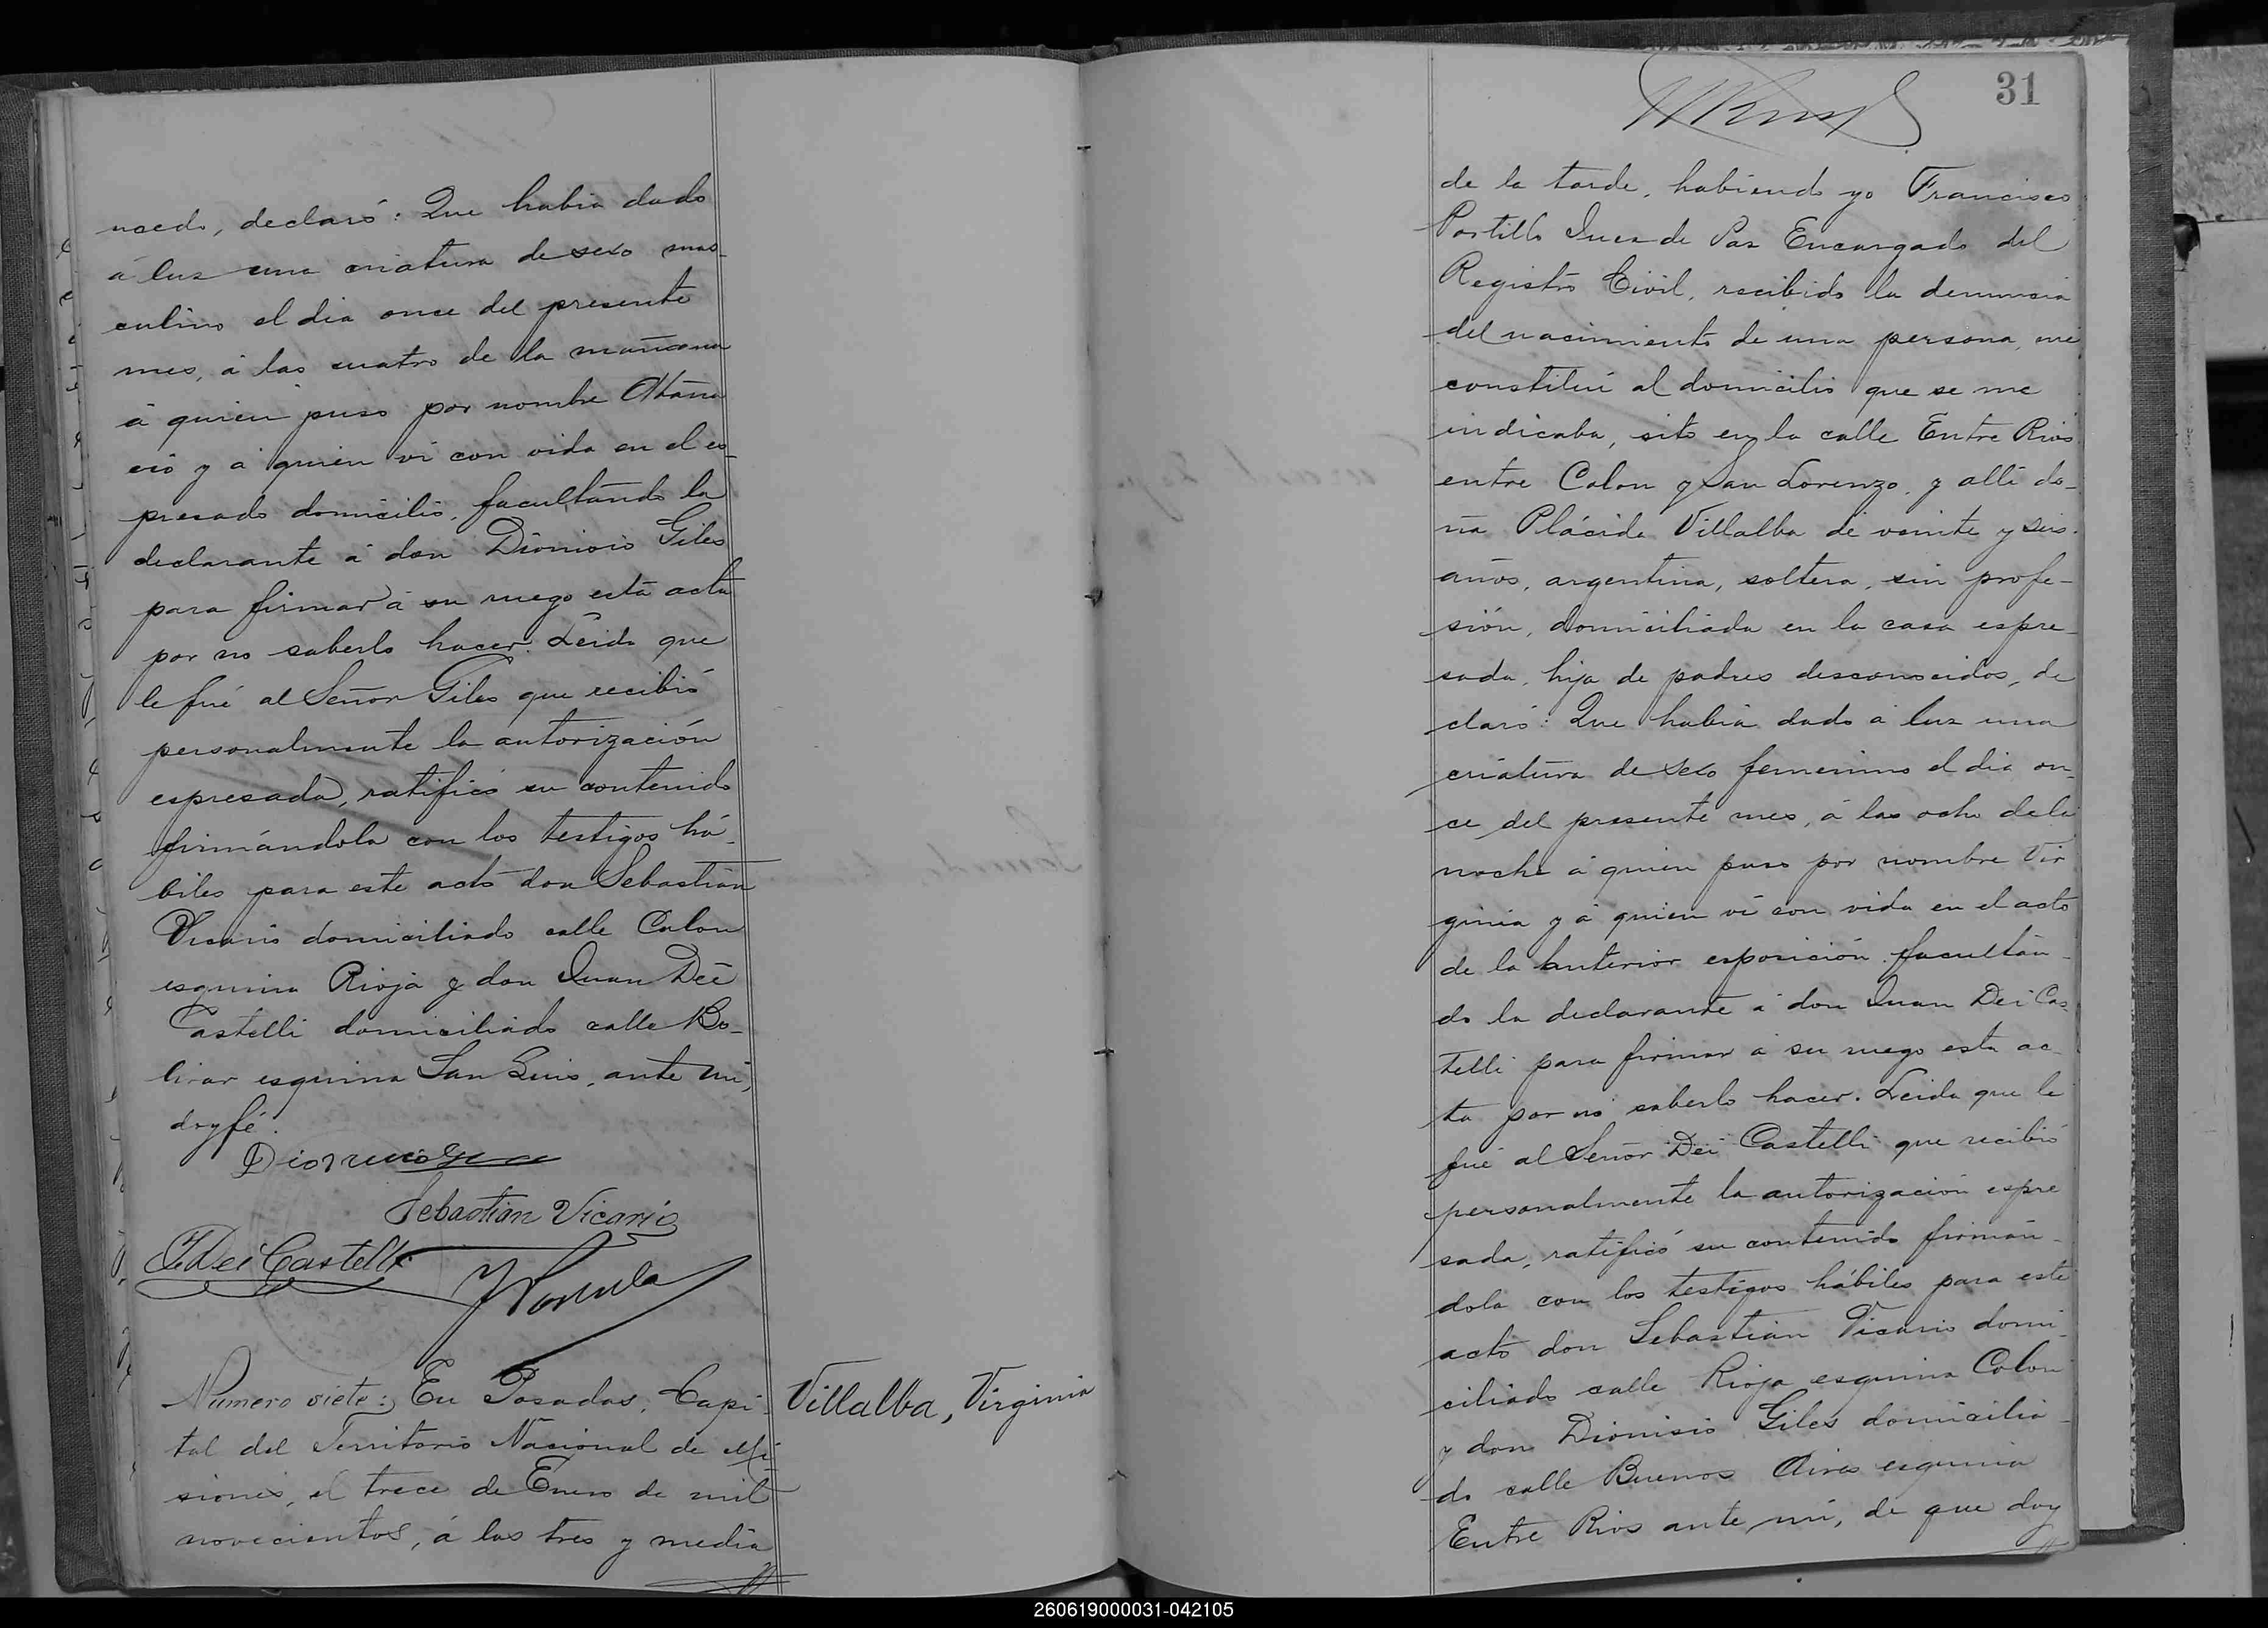 nocedo, declaró: Que habia dado
á luz una criatura de sexo mas-
culino el dia once del presente
mes, á las cuatro de la mañana
á quien puso por nombre Atana
cio y á quien ví con vida en el es-
presado domicilio, facultando la
declarante á don Dionisio Giles
para firmar á su ruego esta acta
por no saberlo hacer. Leida que
le fué al Señor Giles que recibió
personalmente la autorización
espresada, ratificó su contenido
firmándola con los testigos há-
biles para este acto don Sebastian
Vicario domiciliado calle Colon
esquina Rioja y don Juan Dei
Castelli domiciliado calle Bo-
livar esquina San Luis, ante mí,
doy fé.
Dionicio
Sebastian Vicario
J. Dei Castelli
Numero siete: En Posadas, Capi-
tal del Territorio Nacional de Mi-
siones, el trece de Enero de mil
novecientos, á las tres y media
Villalba, Virginia
31
de la tarde, habiendo yo Francisco
Portillo Juez de Paz Encargado del
Registro Civil, recibido la denuncia
del nacimiento de una persona, me
constituí al domicilio que se me
indicaba, sito en la calle Entre Rios
entre Colon y San Lorenzo, y allí do-
ña Plácida Villalba de veinte y seis
años, argentina, soltera, sin profe-
sión, domiciliada en la casa espre-
sada, hija de padres desconocidos, de
claró: Que habia dado á luz una
criatura de sexo femenino el dia on-
ce del presente mes, á las ocho de la
noche á quien puso por nombre Vir
ginia y á quien ví con vida en el acto
de la anterior esposición facultan-
do la declarante á don Juan Dei Cas-
telli para firmar á su ruego esta ac-
ta por no saberlo hacer. Leida que le
fué al Señor Dei Castelli que recibió
personalmente la autorización espre
sada, ratificó su contenido firmán-
dola con los testigos hábiles para este
acto don Sebastian Vicario domi-
ciliado calle Rioja esquina Colon
y don Dionisio Giles domicilia-
do calle Buenos Aires esquina
Entre Rios ante mí, de que doy
260619000031-042105